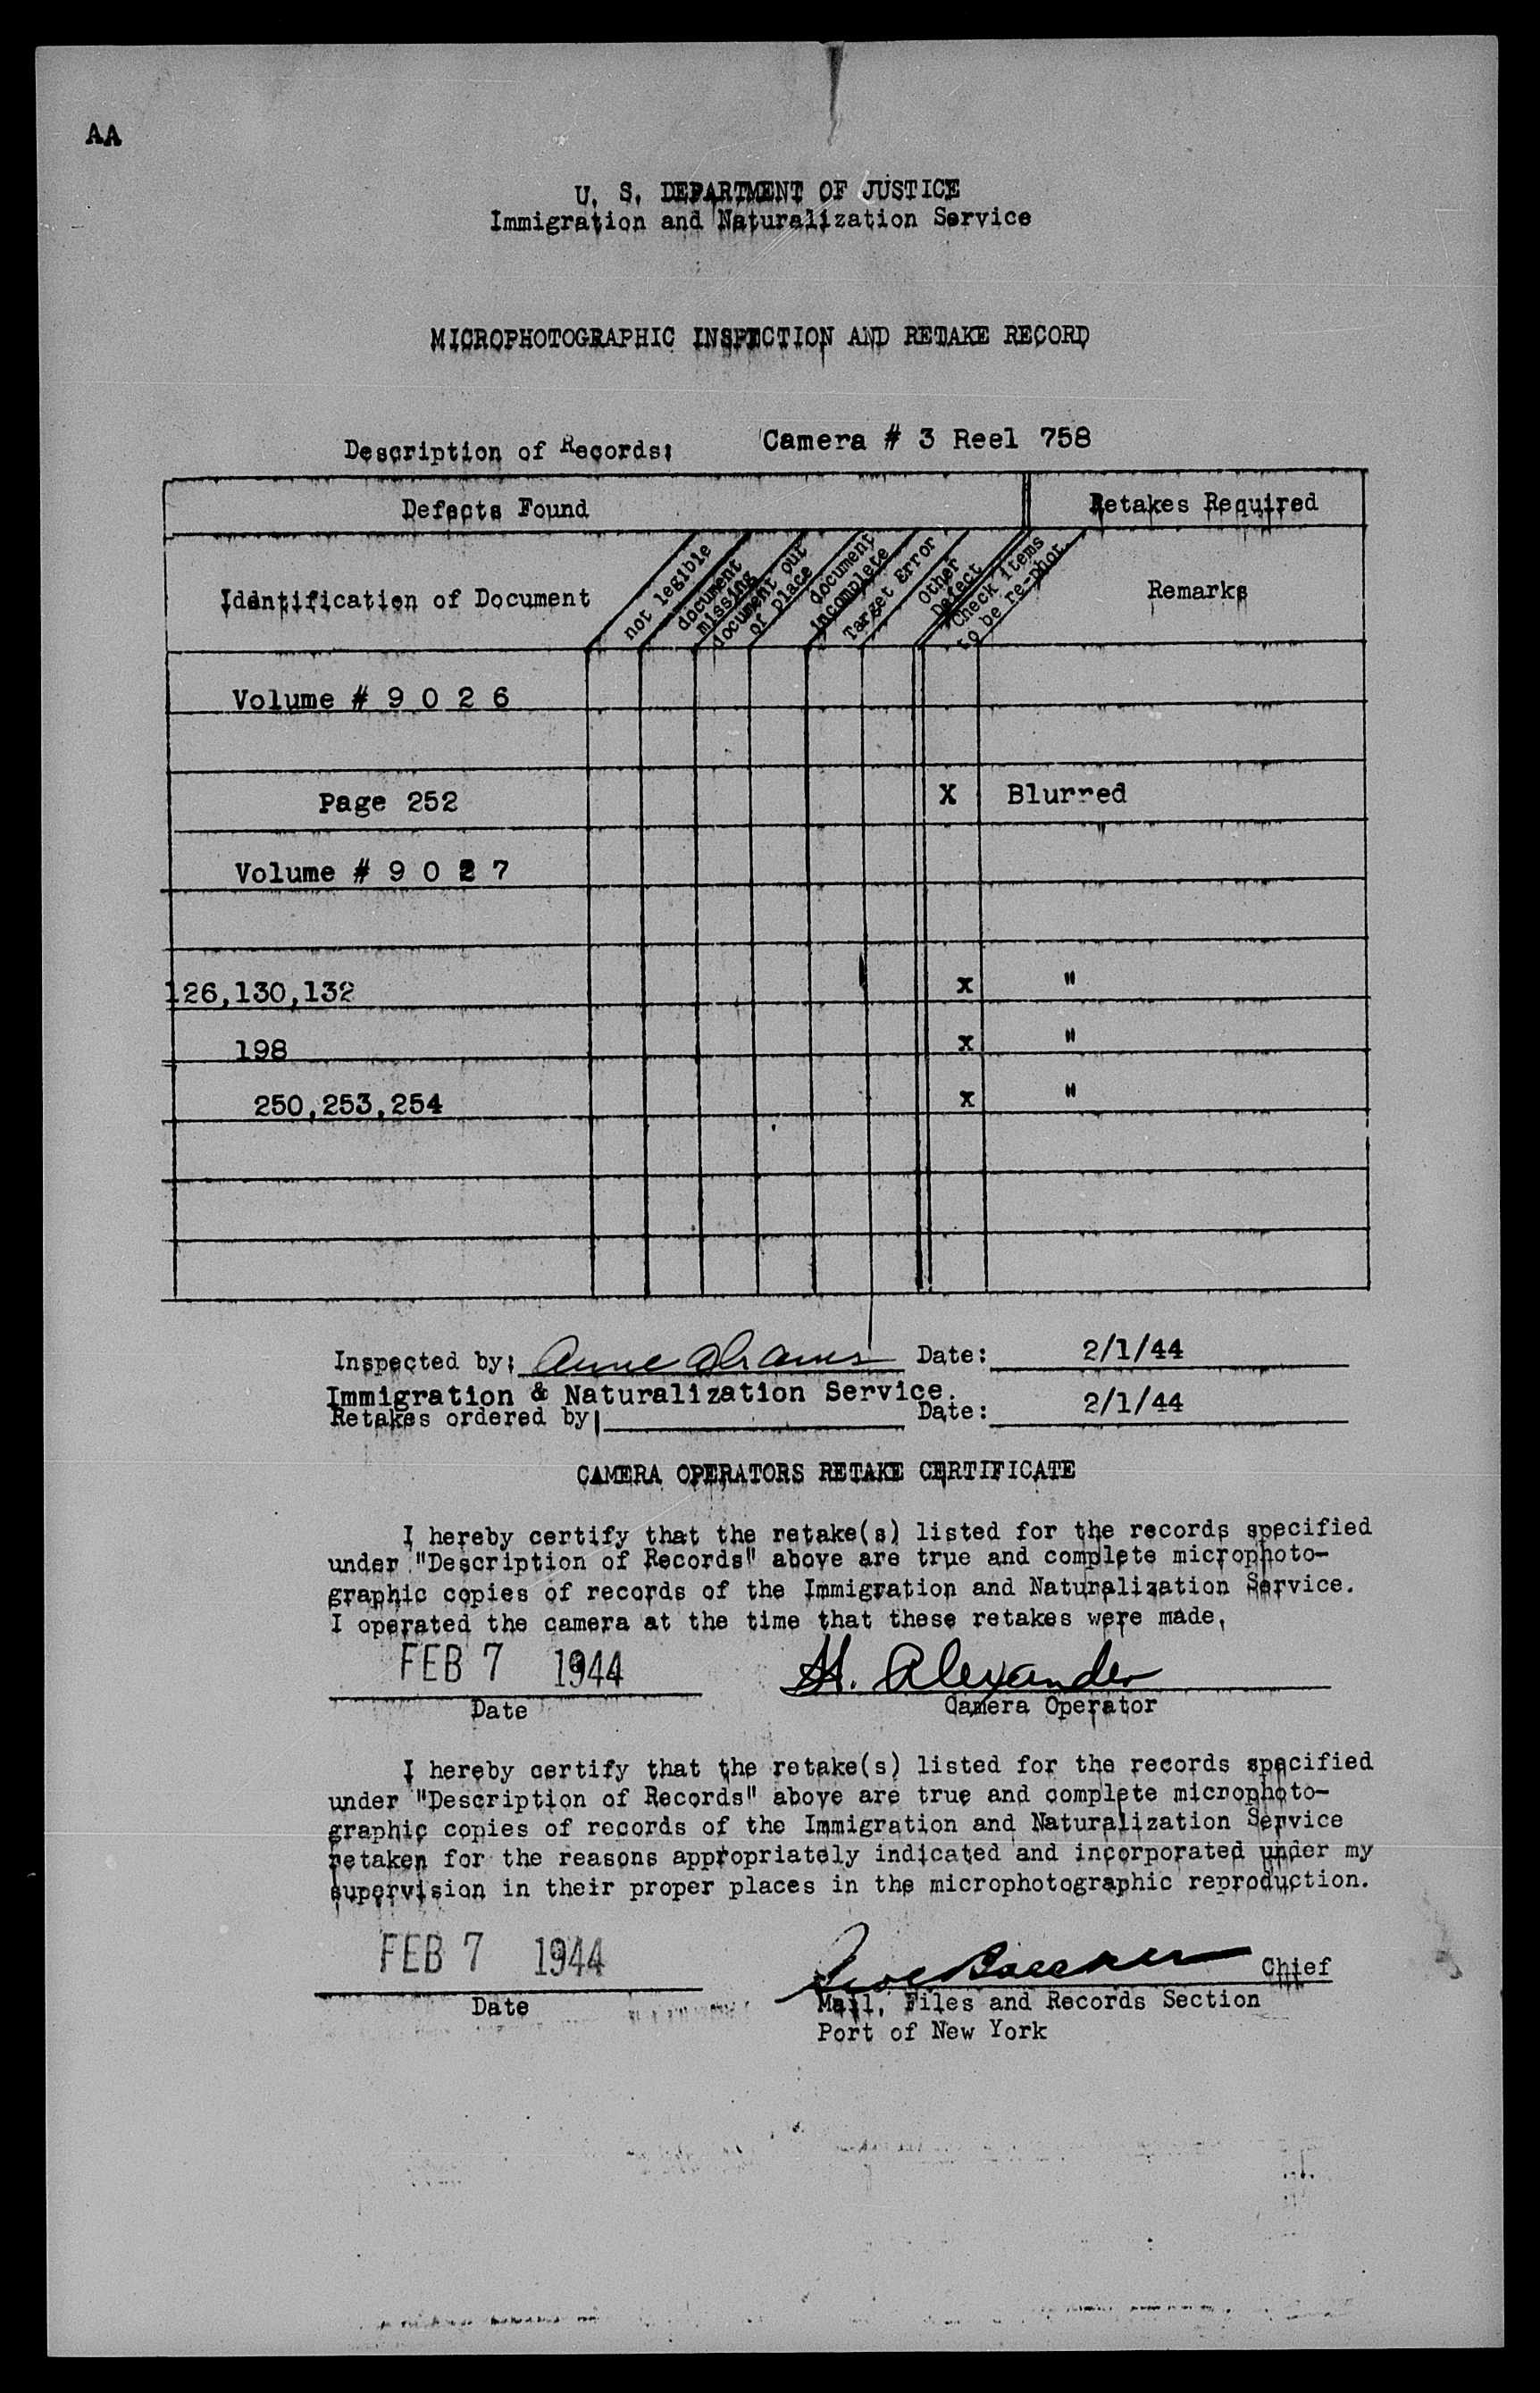 AA
U. S. DEPARTMENT OF JUSTICE
Immigration and Naturalization Service
MICROPHOTOGRAPHIC INSPECTION AND RETAKE RECORD
Description of Records: Camera # 3 Reel 758
Defects Found Retakes Required
Identification of Document
not legible
document missing
document out of place
document incomplete
Target Error
Other Defect
Check items to be re-phot.
Remarks
Volume # 9 0 2 6
Page 252 X Blurred
Volume # 9 0 2 7
126,130,132 x "
198 x "
250,253,254 x "
Inspected by: Anne Abrams Date: 2/1/44
Immigration & Naturalization Service.
Retakes ordered by Date: 2/1/44
CAMERA OPERATORS RETAKE CERTIFICATE
I hereby certify that the retake(s) listed for the records specified
under "Description of Records" above are true and complete microphoto-
graphic copies of records of the Immigration and Naturalization Service.
I operated the camera at the time that these retakes were made.
FEB 7 1944 H. Alexander
Date Camera Operator
I hereby certify that the retake(s) listed for the records specified
under "Description of Records" above are true and complete microphoto-
graphic copies of records of the Immigration and Naturalization Service
retaken for the reasons appropriately indicated and incorporated under my
supervision in their proper places in the microphotographic reproduction.
FEB 7 1944 Chief
Date Mail, Files and Records Section
Port of New York